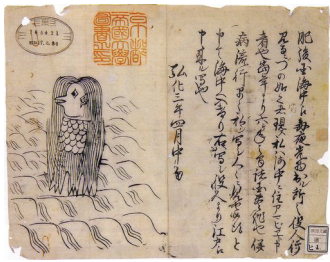 肥後国海中え毎夜光物出ル所之役人行
見るニづの如く者現ス私ハ海中ニ住アマビヱト申
者也当年より六ヶ年之間諸国豊作也併
病流行早々私写シ人々ニ見セ候得と
申て海中へ入けり右写シ役人より江戸え
申来ル写也
弘化三年四月中旬
京都
帝国大学
図書之印